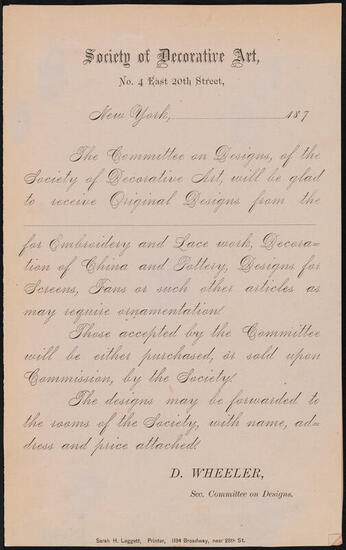 Society of Decorative Art,
No. 4 East 20th Street,
New York, 187
The Committee on Designs, of the
Society of Decorative Art, will be glad
to receive Original Designs from the
for Embroidery and Lace work, Decora-
tion of China and Pottery, Designs for
Screens, Fans or such other articles as
may require ornamentation.
Those accepted by the Committee
will be either purchased, or sold upon
Commission, by the Society.
The designs may be forwarded to
the rooms of the Society, with name, ad-
dress and price attached.
D. WHEELER,
Sec. Committee on Designs.
Sarah H. Leggett, Printer, 1184 Broadway, near 28th St.